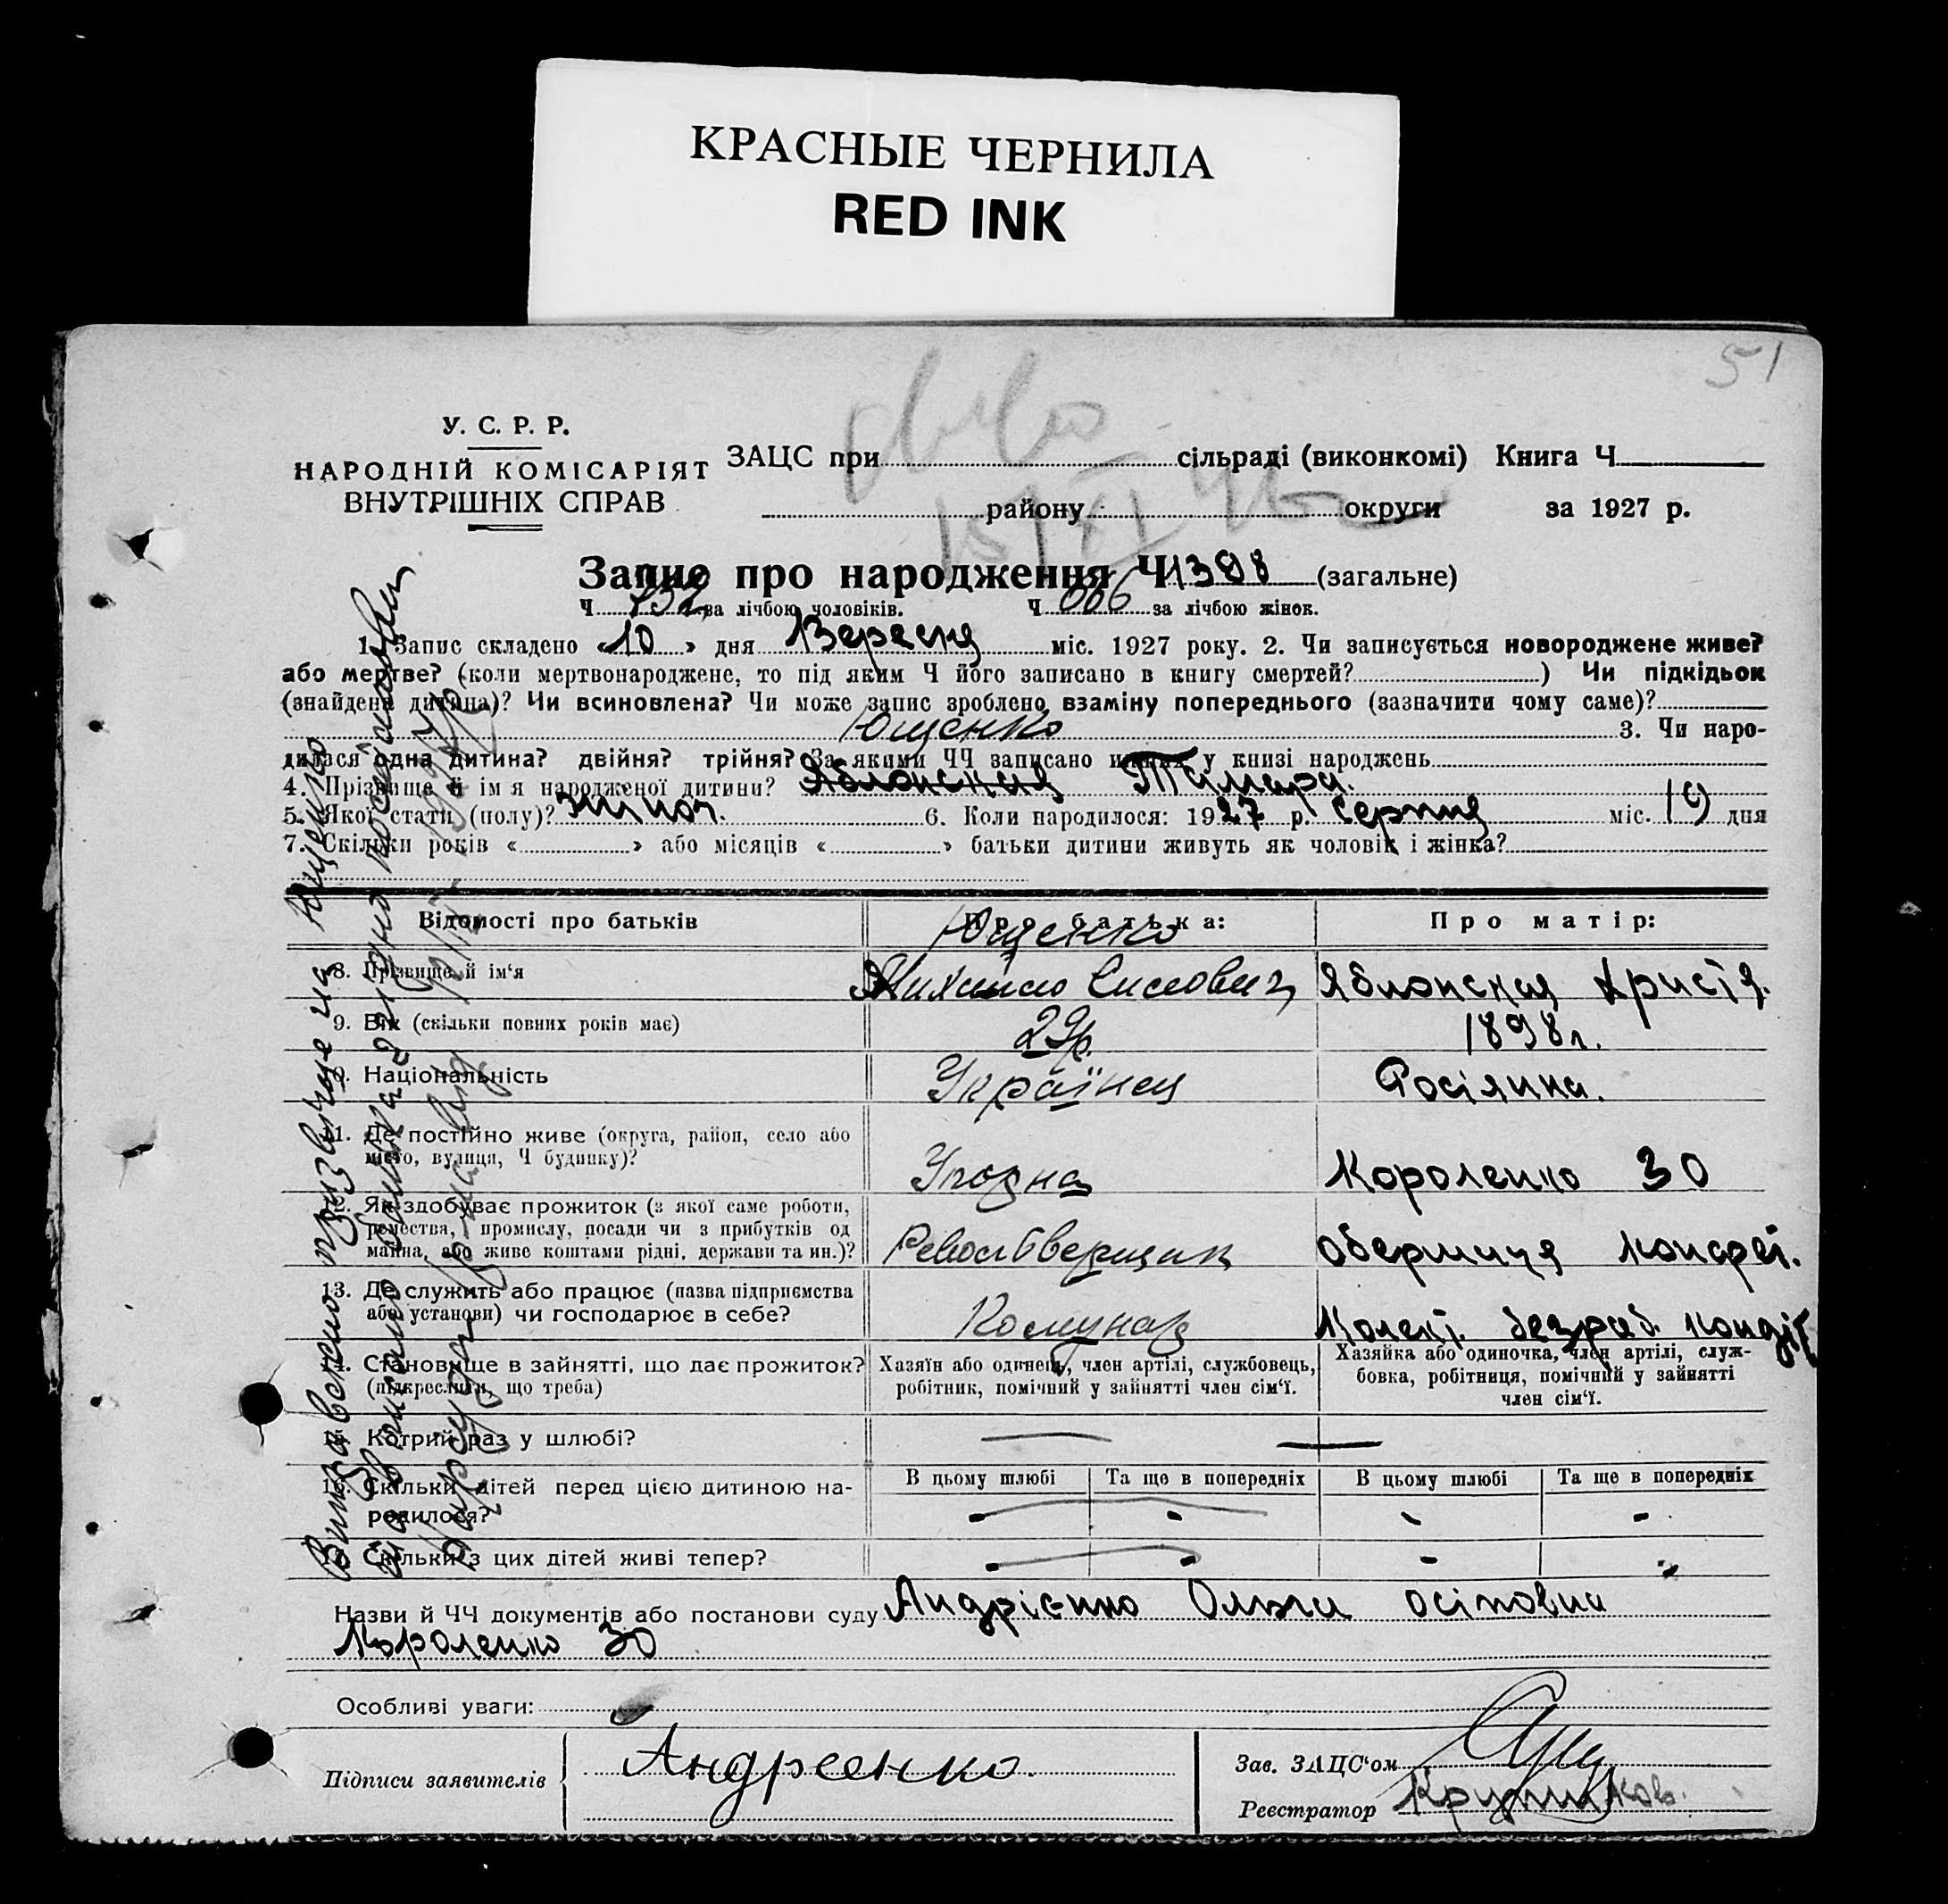 КРАСНЫЕ ЧЕРНИЛА
RED INK
51
У. С. Р. Р.
НАРОДНІЙ КОМІСАРІЯТ
ВНУТРІШНІХ СПРАВ
ЗАЦС при сільраді (виконкомі) Книга Ч
району округи за 1927 р.
Запис про народження Ч 1398 (загальне)
Ч 732 за лічбою чоловіків. Ч 666 за лічбою жінок.
1. Запис складено «10» дня Вересня міс. 1927 року. 2. Чи записується новороджене живе?
або мертве? (коли мертвонароджене, то під яким Ч його записано в книгу смертей? ) Чи підкідьок
(знайдена дитина)? Чи всиновлена? Чи може запис зроблено взаміну попереднього (зазначити чому саме)?
Ющенко 3. Чи наро-
дилася одна дитина? двійня? трійня? За якими ЧЧ записано инших у книзі народжень
4. Прізвище й ім'я народженої дитини? Яблонская Тамара.
5. Якої статі (полу)? жіноч. 6. Коли народилося: 1927 р. Серпня міс. 19 дня
7. Скільки років « » або місяців « » батьки дитини живуть як чоловік і жінка?
Відомості про батьків
Про батька:
Про матір:
Ющенко
8. Прізвище й ім'я
Михайло Силович
Яблонская Христя.
9. Вік (скільки повних років має)
29р.
1898 р.
10. Національність
Українец
Росіянка.
11. Де постійно живе (округа, район, село або
місто, вулиця, Ч будинку)?
Короленко 30
12. Як здобуває прожиток (з якої саме роботи,
ремества, промислу, посади чи з прибутків од
майна, або живе коштами рідні, держави та ин.)?
Револьверщик
обертниця конфет.
13. Де служить або працює (назва підприємства
або установи) чи господарює в себе?
Комунар
Колект. безраб.
14. Становище в зайнятті, що дає прожиток?
(підкреслити, що треба)
Хазяїн або одинець, член артілі, службовець,
робітник, помічний у зайнятті член сім'ї.
Хазяйка або одиночка, член артілі, служ-
бовка, робітниця, помічний у зайнятті
член сім'ї.
15. Котрий раз у шлюбі?
16. Скільки дітей перед цією дитиною на-
родилося?
В цьому шлюбі
Та ще в попередніх
В цьому шлюбі
Та ще в попередніх
17. Скільки з цих дітей живі тепер?
Назви й ЧЧ документів або постанови суду Андрієнко Ольги Осіповни
Короленко 30
Особливі уваги:
Підписи заявителів
Андреенко.
Зав. ЗАЦС'ом
Реєстратор
Виправлено прізвище на Ющенко
та вписано батька згідно постанови